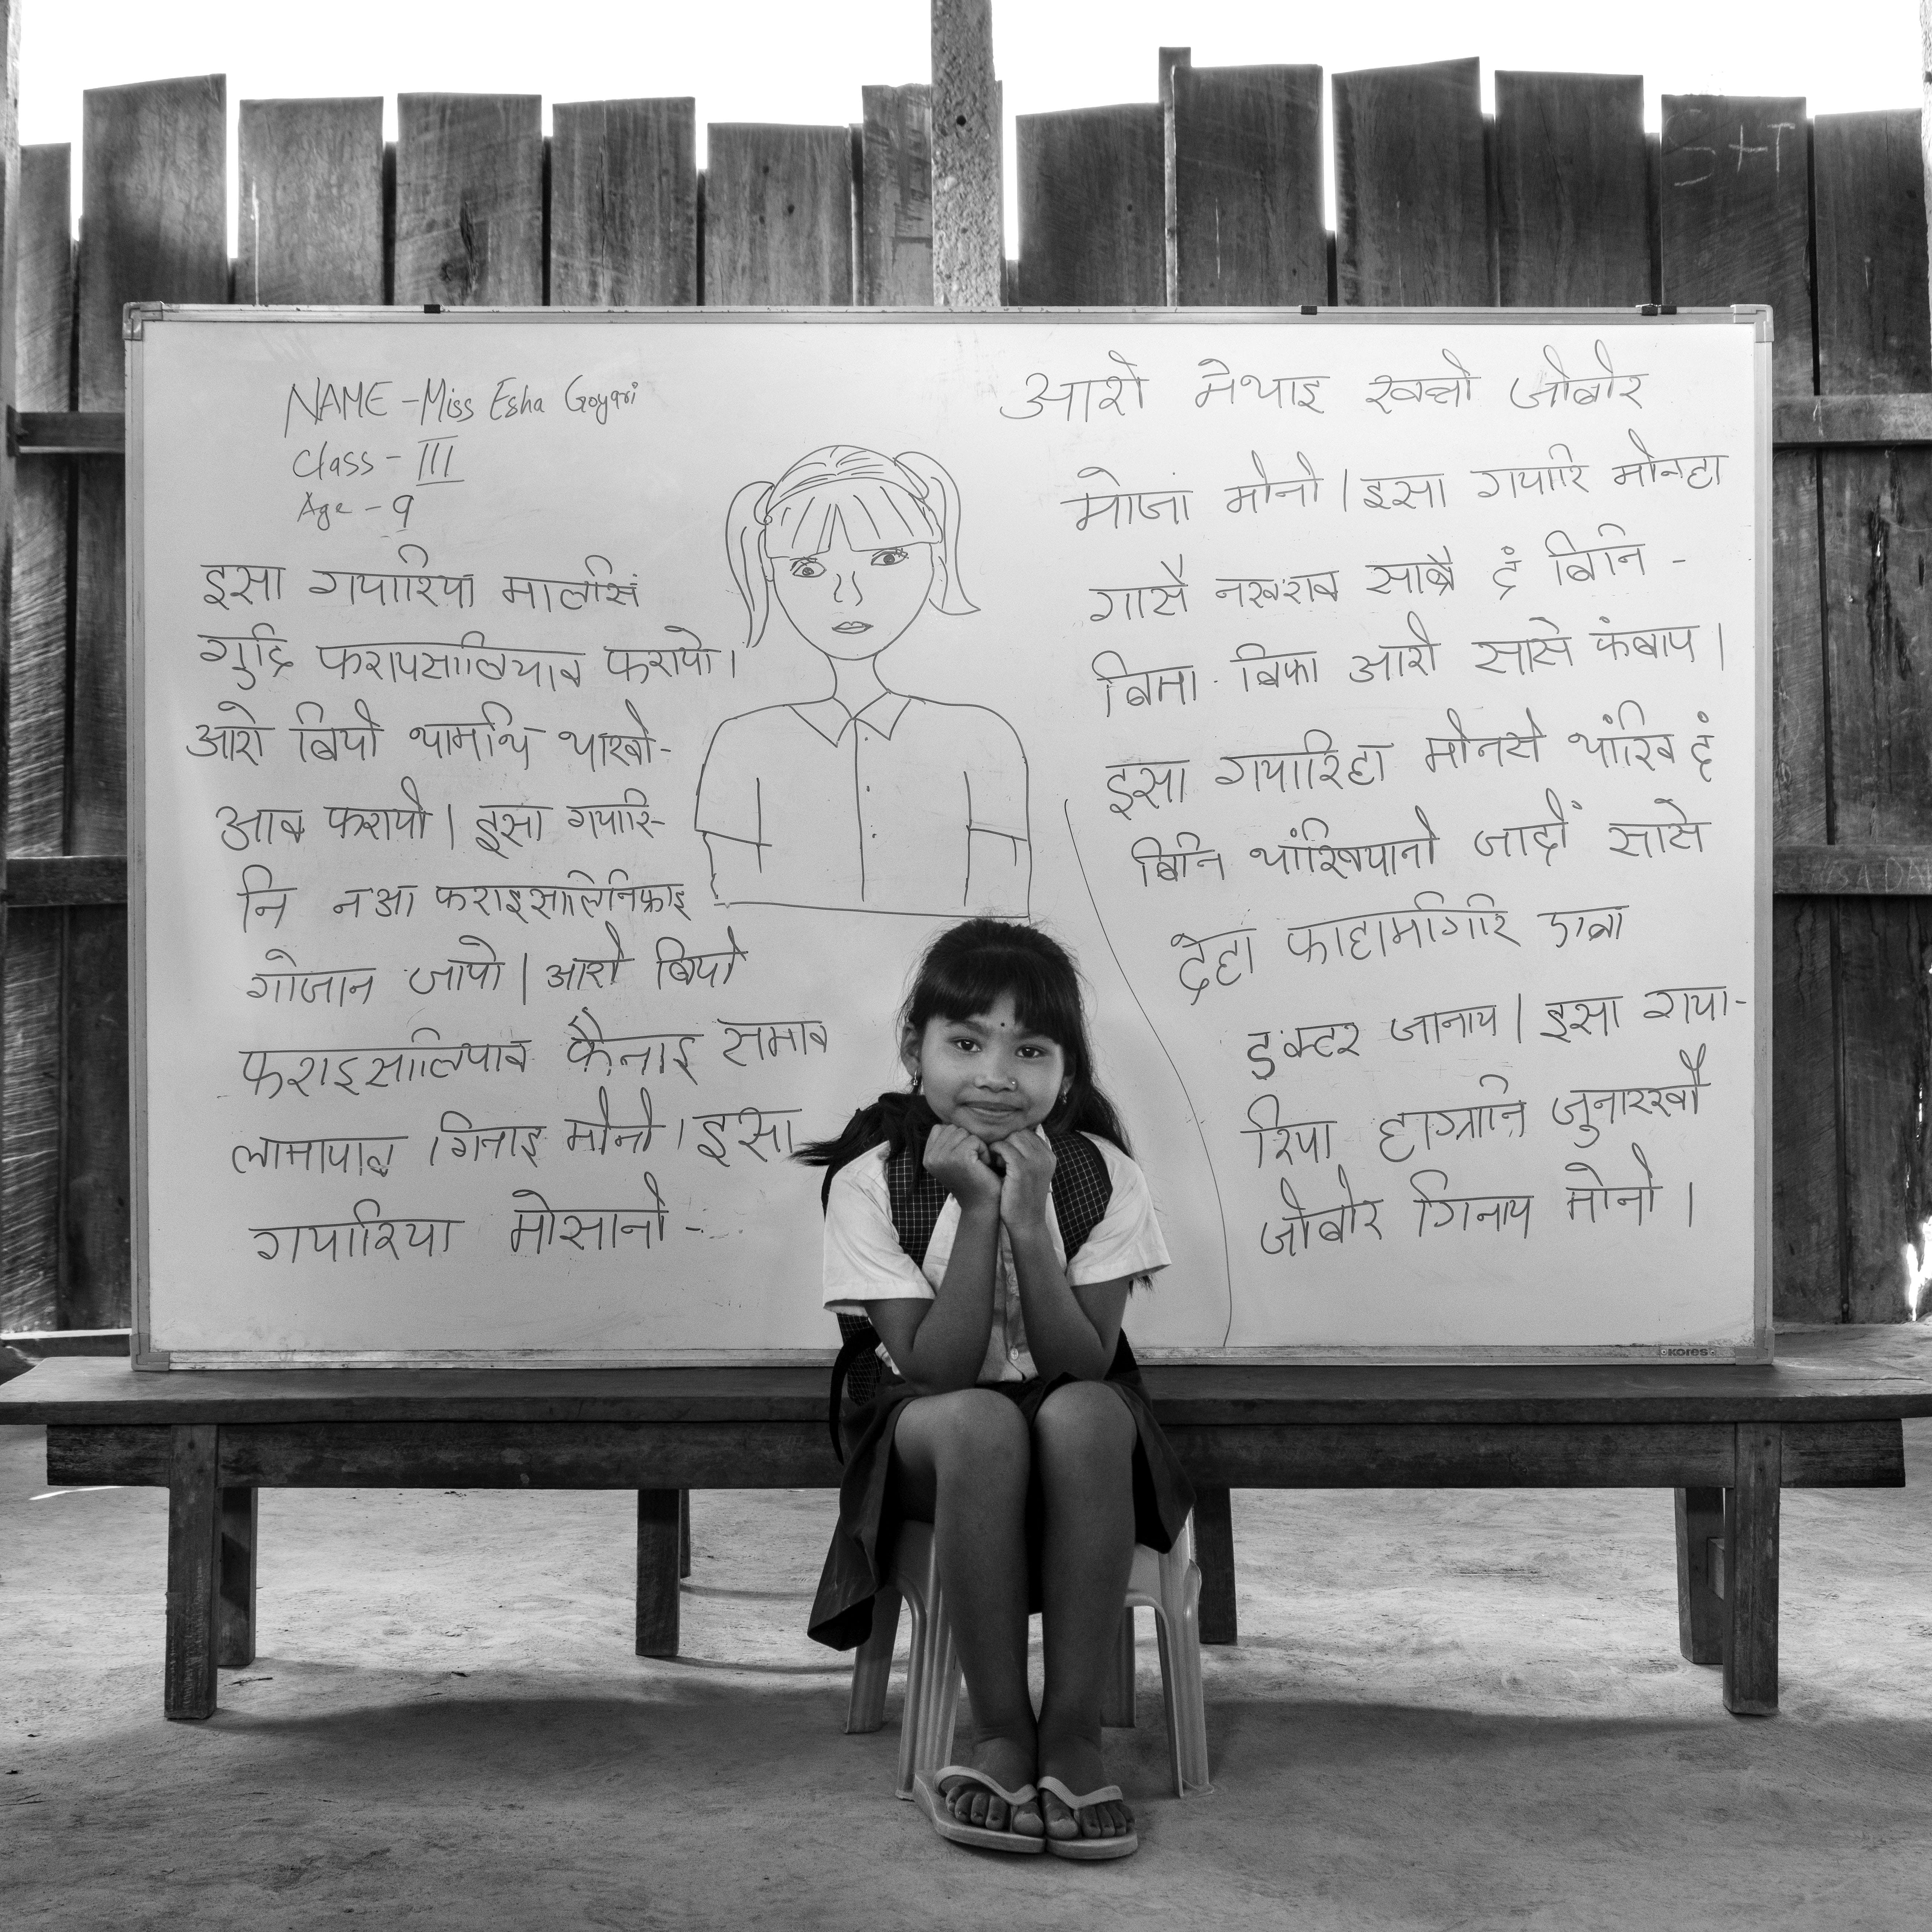 NAME - Miss Esha Goyari
Class - III
Age - 9
इसा गयारिया मालसिं
गुदि फरायसालियाव फरायो।
आरो बियो थामथि थाखो-
आव फरायो। इसा गयारि-
नि नआ फराइसालिनिफ्राइ
गोजान जायो। आरो बियो
फराइसालियाव फैनाइ समाव
लामायाव गिनाइ मोनो। इसा
गयारिया मोसानो-
आरो मेथाइ खननो जोबोर
मोजां मोनो। इसा गयारि मोनहा
गासै नखराव साब्रै दं बिनि-
बिमा बिफा आरो सासे फंबाय।
इसा गयारिहा मोनसे थांखि दं
बिनि थांखियानो जादों सासे
देहा फाहामगिरि एबा
डक्टर जानाय। इसा गया-
रिया हाग्रानि जुनारखौ
जोबोर गिनाय मोनो।
S+T
Kores